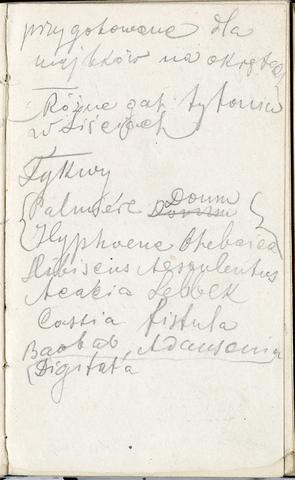 przygotowane dla
majtków na okręta
Różne gat. tytoniu
w Liściach
Tykwy
Palmiére Doum
Hyphoene Thebaica
Hibiscus Aesculentus
Acacia Lebbek
Cassia fistula
Baobab Adansonia
Digitata